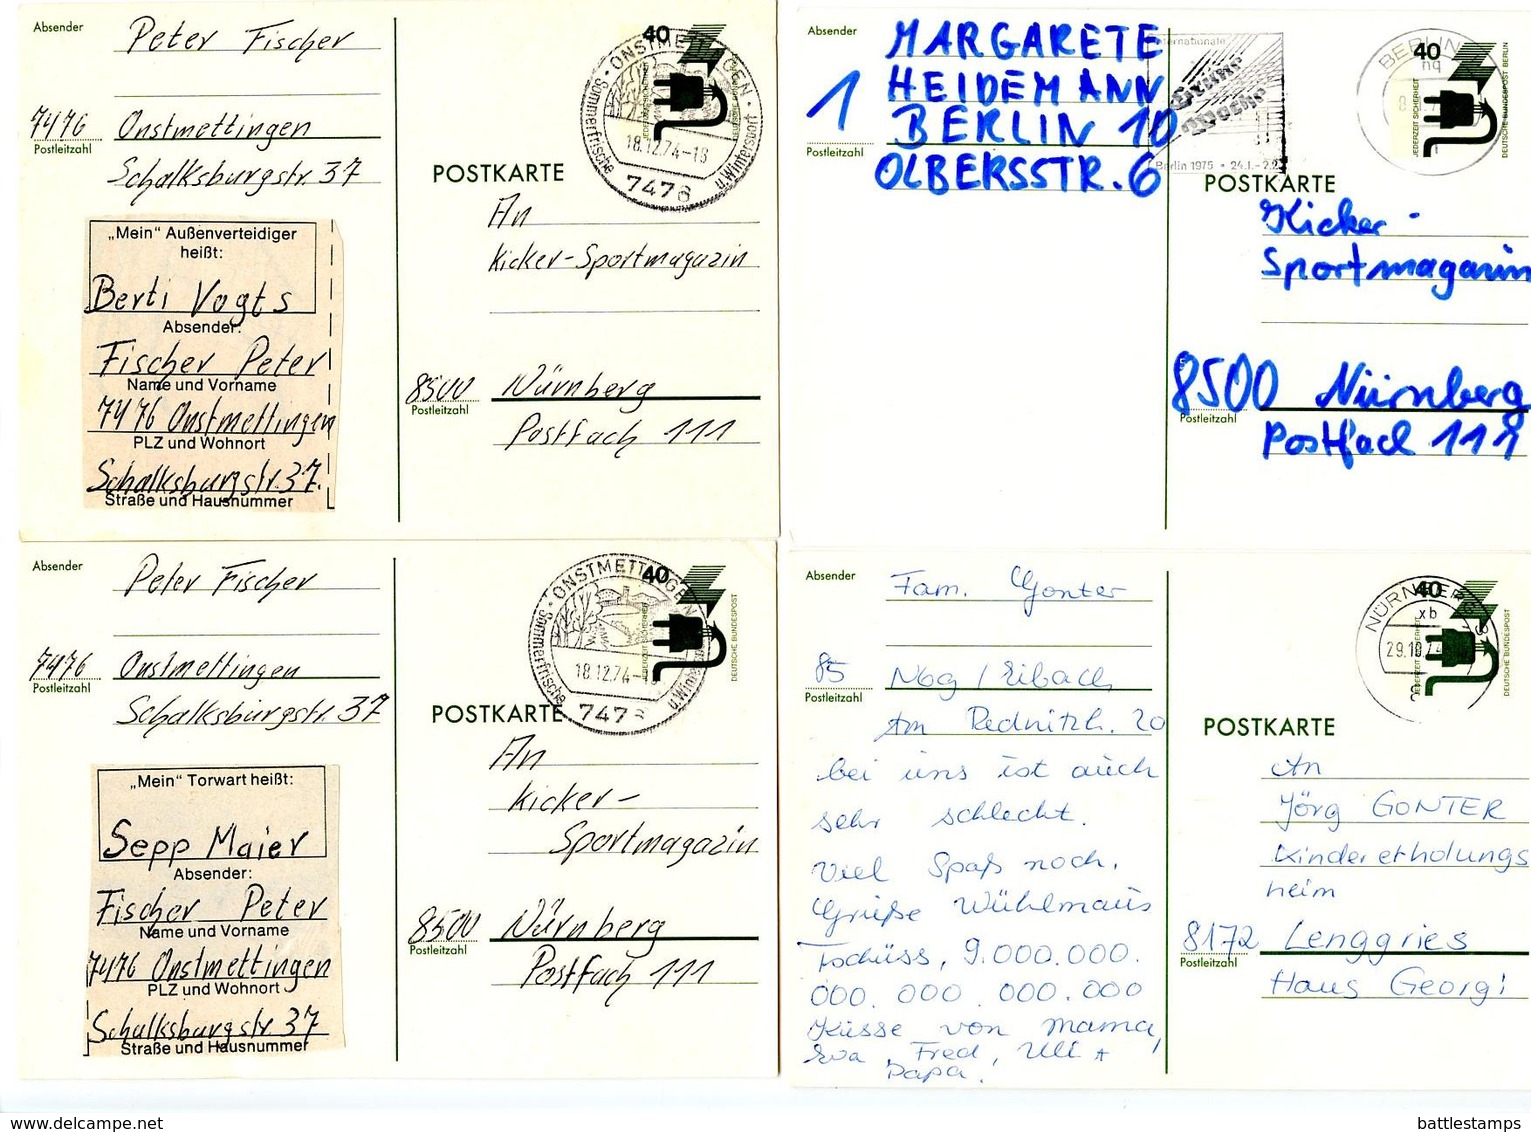 Absender
Peter Fischer
7476 Onstmettingen
Postleitzahl
Schalksburgstr. 37
„Mein“ Außenverteidiger
heißt:
Berti Vogts
Absender:
Fischer Peter
Name und Vorname
7476 Onstmettingen
PLZ und Wohnort
Schalksburgstr. 37.
Straße und Hausnummer
40
ONSTMETTINGEN
Sommerfrische u. Wintersport
18.12.74-18
7476
JEDERZEIT SICHERHEIT
POSTKARTE
An
Kicker-Sportmagazin
8500 Nürnberg
Postleitzahl
Postfach 111
Absender
MARGARETE
HEIDEMANN
1 BERLIN 10
Postleitzahl
OLBERSSTR. 6
Internationale
Grüne
Woche
Berlin 1975 • 24.1.-2.2.
BERLIN
nq
40
JEDERZEIT SICHERHEIT
DEUTSCHE BUNDESPOST BERLIN
POSTKARTE
Kicker-
Sportmagazin
8500 Nürnberg
Postleitzahl
Postfach 111
Absender
Peter Fischer
7476 Onstmettingen
Postleitzahl
Schalksburgstr. 37
„Mein“ Torwart heißt:
Sepp Maier
Absender:
Fischer Peter
Name und Vorname
7476 Onstmettingen
PLZ und Wohnort
Schalksburgstr 37
Straße und Hausnummer
40
ONSTMETTINGEN
Sommerfrische u. Wintersport
18.12.74-18
7476
JEDERZEIT SICHERHEIT
DEUTSCHE BUNDESPOST
POSTKARTE
An
Kicker-
Sportmagazin
8500 Nürnberg
Postleitzahl
Postfach 111
Absender
Fam. Gonter
85 Nbg / Eibach
Postleitzahl
Am Rednitzh. 20
bei uns ist auch
sehr schlecht.
Viel Spaß noch.
Grüße Wühlmaus
Tschüss, 9.000.000.
000.000.000.000
Küsse von Mama,
Eva, Fred, Uli +
Papa.
NÜRNBERG
xb
29.10.74
40
JEDERZEIT SICHERHEIT
DEUTSCHE BUNDESPOST
POSTKARTE
An
Jörg GONTER
Kindererholungs
heim
8172 Lenggries
Postleitzahl
Haus Georgi
www.delcampe.net
battlestamps